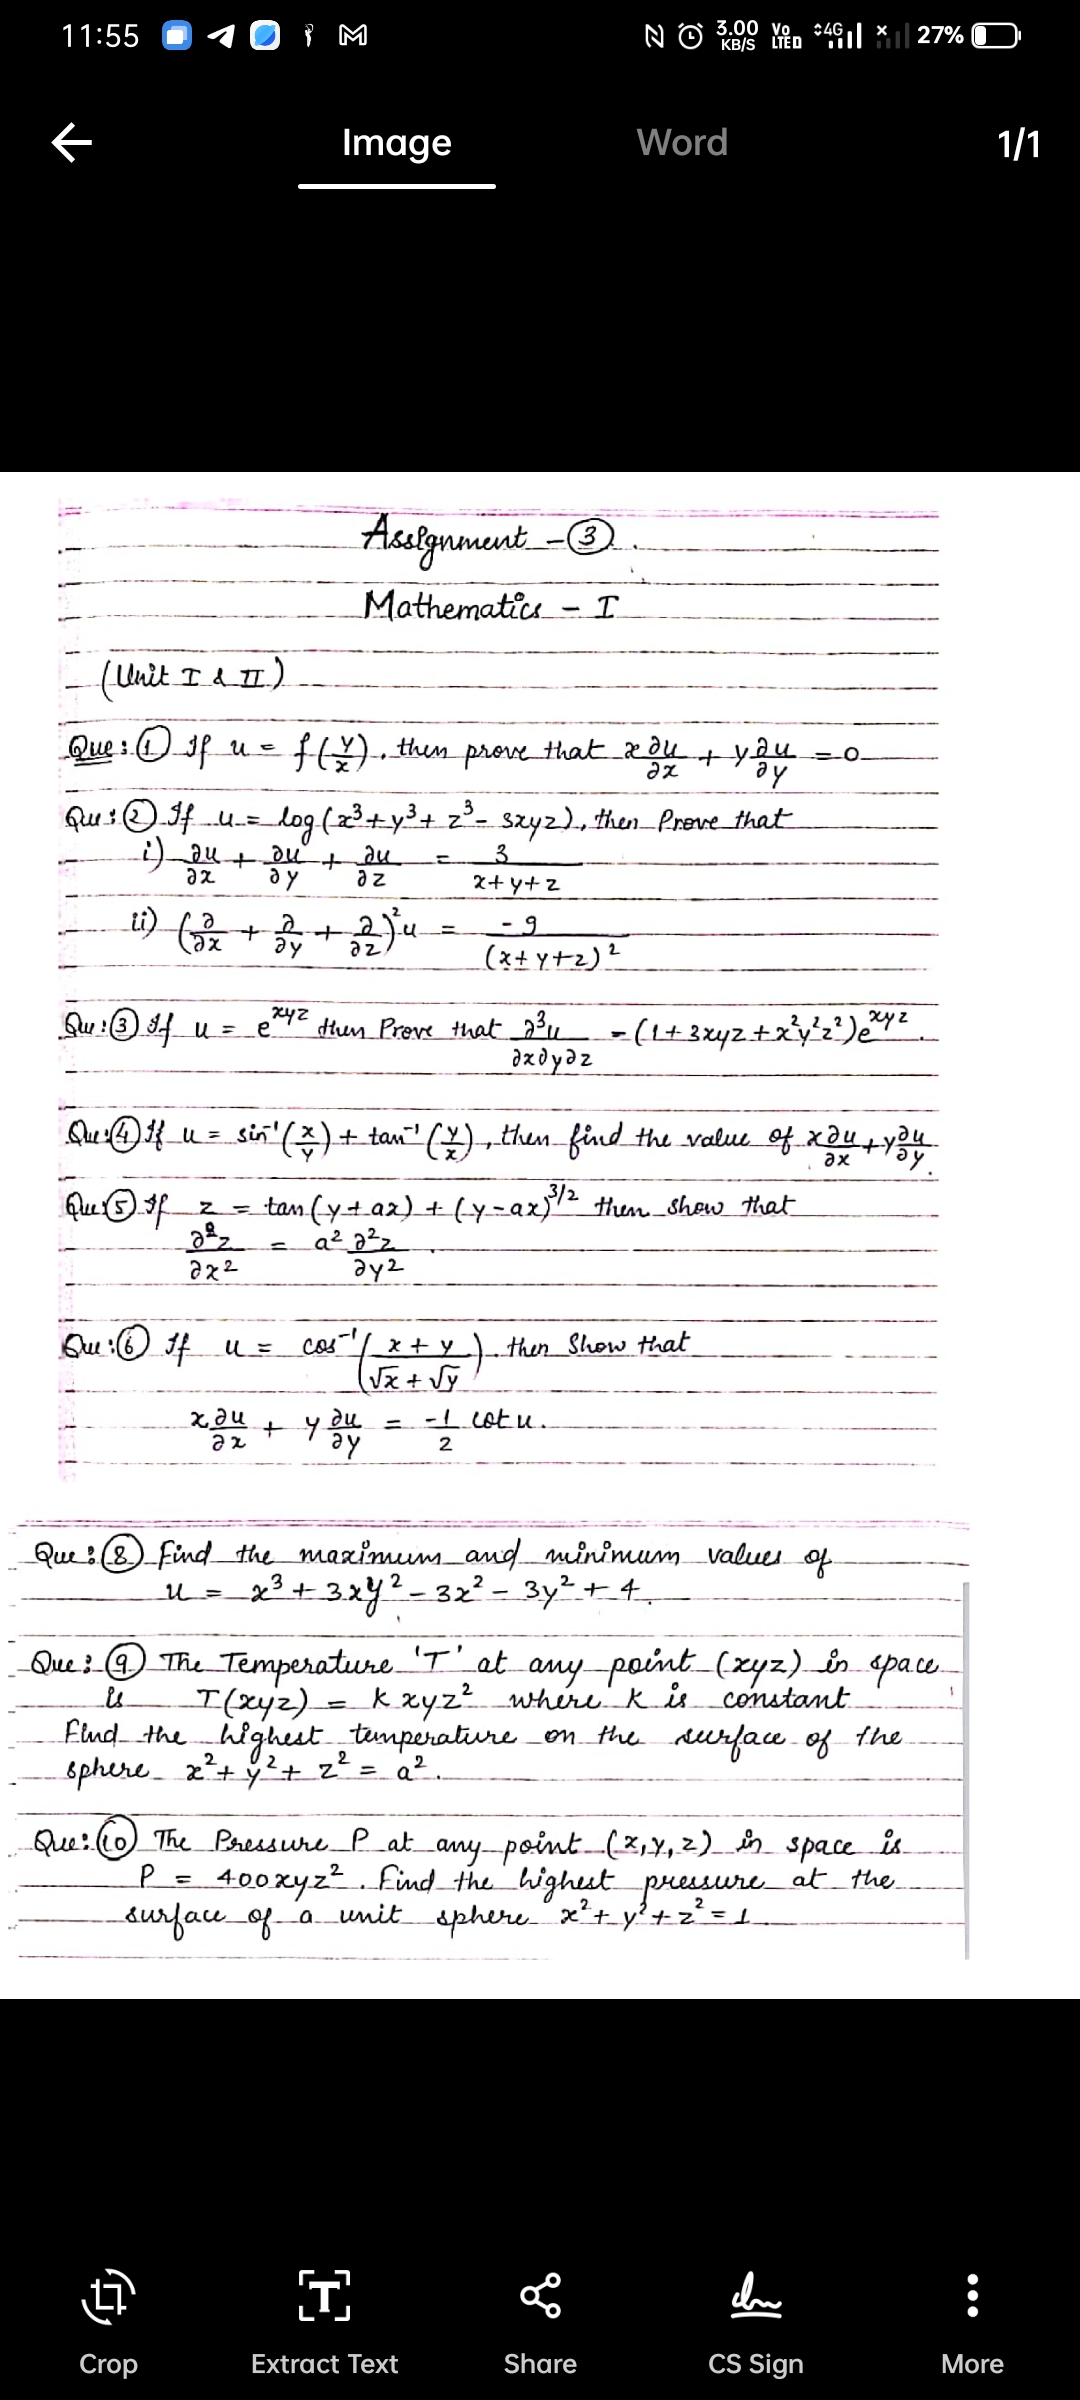 11:55
3.00 KB/S Vo LTE 4G 27%
Image Word 1/1
Assignment - ③.
Mathematics - I
(Unit I & II)
Que: ① If u = f(y/x), then prove that x ∂u/∂x + y ∂u/∂y = 0
Qu: ② If u = log(x³+y³+z³- 3xyz), then Prove that
i) ∂u/∂x + ∂u/∂y + ∂u/∂z = 3/(x+y+z)
ii) (∂/∂x + ∂/∂y + ∂/∂z)²u = -9/(x+y+z)²
Qu: ③ If u = e^xyz then Prove that ∂³u/∂x∂y∂z = (1+3xyz+x²y²z²)e^xyz.
Que: ④ If u = sin⁻¹(x/y) + tan⁻¹(y/x), then find the value of x∂u/∂x + y∂u/∂y.
Que: ⑤ If z = tan(y+ax) + (y-ax)^3/2 then show that
∂²z/∂x² = a² ∂²z/∂y².
Que: ⑥ If u = cos⁻¹((x+y)/(√x+√y)). then Show that
x∂u/∂x + y∂u/∂y = -1/2 cot u.
Que: ⑧ Find the maximum and minimum values of
u = x³ + 3xy² - 3x² - 3y² + 4.
Que: ⑨ The Temperature 'T' at any point (xyz) in space
is T(xyz) = k xyz² where k is constant
Find the highest temperature on the surface of the
sphere x²+ y²+ z² = a².
Que: ⑩ The Pressure P at any point (x,y,z) in space is
P = 400xyz². Find the highest pressure at the
surface of a unit sphere x²+ y²+z² = 1
Crop Extract Text Share CS Sign More